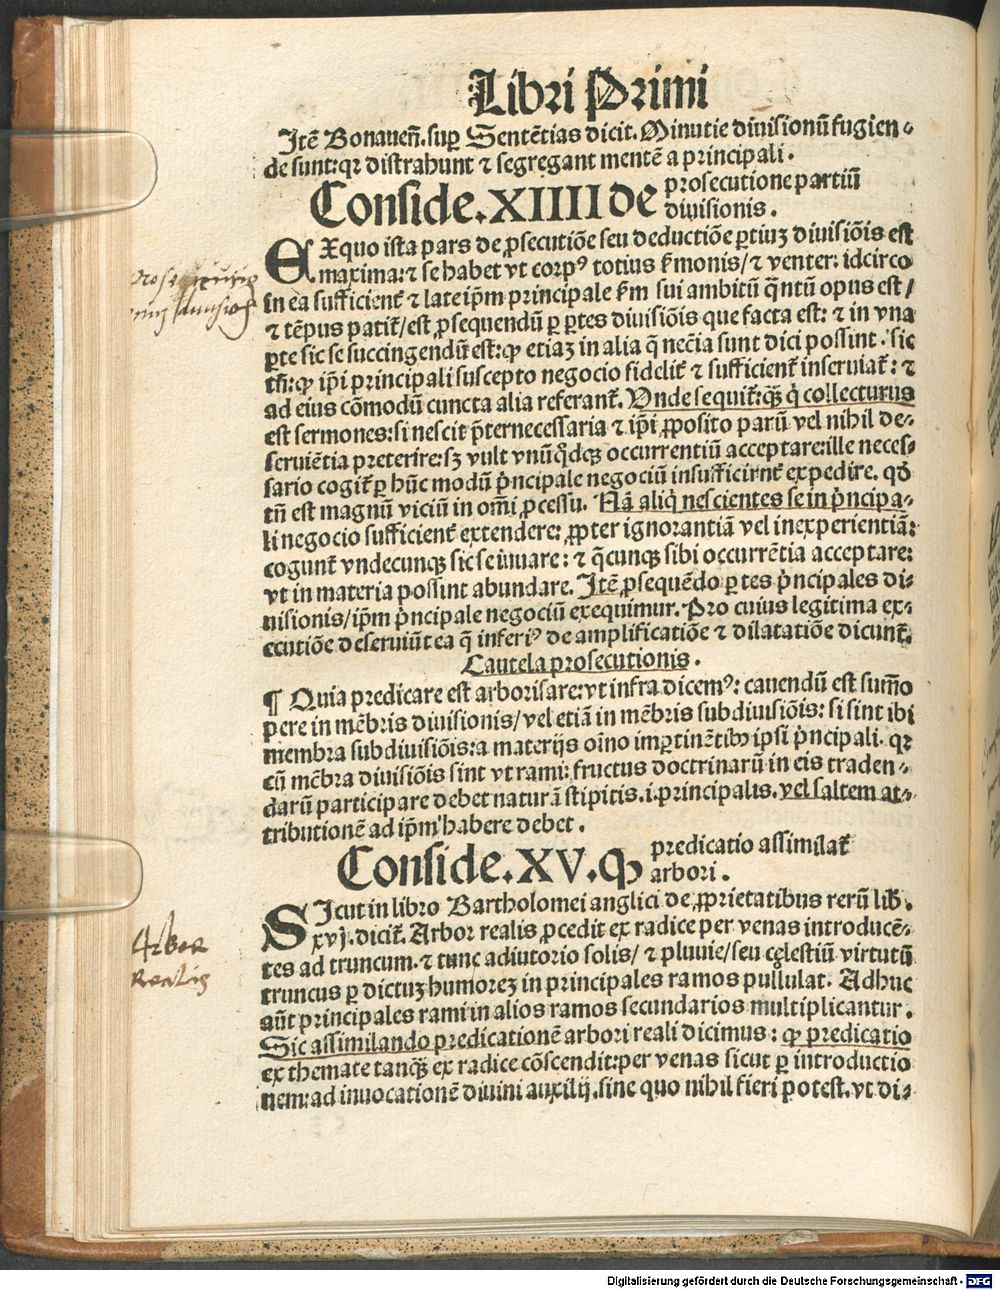 Libri Primi
Itē Bonaueñ. sup̱ Sentētias dicit. Minutie diuisionū fugien⸗
de sunt: qꝛ distrahunt ⁊ segregant mentē a principali.
Conside. XIIII de prosecutione partiū
diuisionis.
EX quo ista pars de ꝓsecutiōe seu deductiōe ꝑtiuꝫ diuisiōis est
maxima: ⁊ se habet vt corpꝰ totius ẜmonis/ ⁊ venter: idcirco
in ea sufficient̄ ⁊ late ip̄m principale ẜm sui ambitū q̄ntū opus est/
⁊ tēpus patit̄/ est ꝓsequendū ꝑ ꝑtes diuisiōis que facta est: ⁊ in vna
ꝑte sic se succingendū est: ꝙ etiaꝫ in alia q̄ nec̄ia sunt dici possint. sic
tñ: ꝙ ip̄i principali suscepto negocio fidelit̄ ⁊ sufficient̄ inseruiat̄: ⁊
ad eius cōmodū cuncta alia referant̄. Vnde sequit̄: ꝙ̄ q̇ collecturus
est sermones: si nescit p̄ternecessaria ⁊ ip̄i ꝓposito parū vel nihil de⸗
seruiētia preterire: sꝫ vult vnūq̇dqꝫ occurrentiū acceptare: ille neces⸗
sario cogit̄ ꝑ hūc modū p̄ncipale negociū insufficient̄ expedire. qḋ
tñ est magnū viciū in om̄i ꝓcessu. Nā aliq̇ nescientes se in p̄ncipa⸗
li negocio sufficient̄ extendere: ꝓpter ignorantiā vel inexperientiā:
cogunt̄ vndecunqꝫ sic se iuuare: ⁊ q̄cunqꝫ sibi occurrētia acceptare:
vt in materia possint abundare. Itē ꝓsequēdo ꝑtes p̄ncipales di⸗
uisionis/ ip̄m p̄ncipale negociū exequimur. Pro cuius legitima ex⸗
ecutiōe deseruiūt ea q̄ inferiꝰ de amplificatiōe ⁊ dilatatiōe dicunt̄.
Cautela prosecutionis.
¶ Quia predicare est arborisare: vt infra dicemꝰ: cauendū est sum̄o
pere in mēbris diuisionis/ vel etiā in mēbris subdiuisiōis: si sint ibi
membra subdiuisiōis: a materijs oīno imꝑtinētibꝰ ipsi p̄ncipali. qꝛ
cū mēbra diuisiōis sint vt rami: fructus doctrinarū in eis traden⸗
darū participare debet naturā stipitis. i. principalis. vel saltem at⸗
tributionē ad ip̄m habere debet.
Conside. XV. ꝙ predicatio assimilat̄
arbori.
SIcut in libro Bartholomei anglici de ꝓprietatibus rerū lib̄.
xvij. dicit̄. Arbor realis ꝓcedit ex radice per venas introducē⸗
tes ad truncum. ⁊ tunc adiutorio solis/ ⁊ pluuie/ seu cęlestiū virtutū
truncus ꝑ dictuꝫ humoreꝫ in principales ramos pullulat. Adhuc
aūt principales rami in alios ramos secundarios multiplicantur.
Sic assimilando predicationē arbori reali dicimus: ꝙ predicatio
ex themate tanqꝫ̄ ex radice cōscendit: per venas sicut ꝑ introductio
nem: ad inuocationē diuini auxilij. sine quo nihil fieri potest. vt di⸗
Arbor
Realis
Digitalisierung gefördert durch die Deutsche Forschungsgemeinschaft - DFG